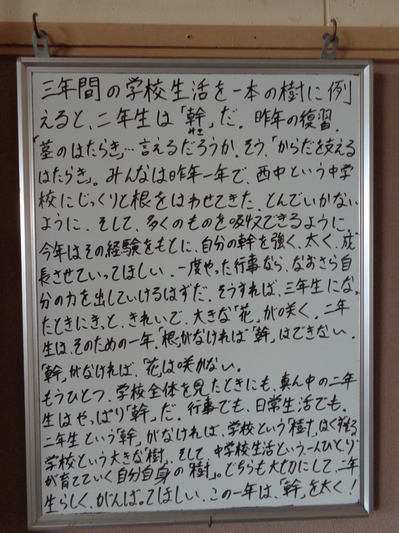 三年間の学校生活を一本の樹に例
えると、二年生は「幹」だ。昨年の復習。
みき
「茎のはたらき」…言えるだろうか。そう、「からだを支える
はたらき」。みんなは昨年一年で、西中という中学
校にじっくりと根をはわせてきた。とんでいかない
ように、そして、多くのものを吸収できるように。
今年はその経験をもとに、自分の幹を強く、太く、成
長させていってほしい。一度やった行事なら、なおさら自
分の力を出していけるはずだ。そうすれば、三年生になっ
たときにきっと、きれいで、大きな「花」が咲く。二年
生は、そのための一年。「根」がなければ「幹」はできない。
「幹」がなければ、「花」は咲かない。
もうひとつ、学校全体を見たときにも、真ん中の二年
生はやっぱり「幹」だ。行事でも、日常生活でも、
二年生という「幹」がなければ、学校という「樹」は
学校という大きな「樹」、そして、中学校生活という一人ひとり
が育てていく自分自身の「樹」。どちらも大切にして、二年
生らしく、がんばってほしい。この一年は、「幹」を太く!